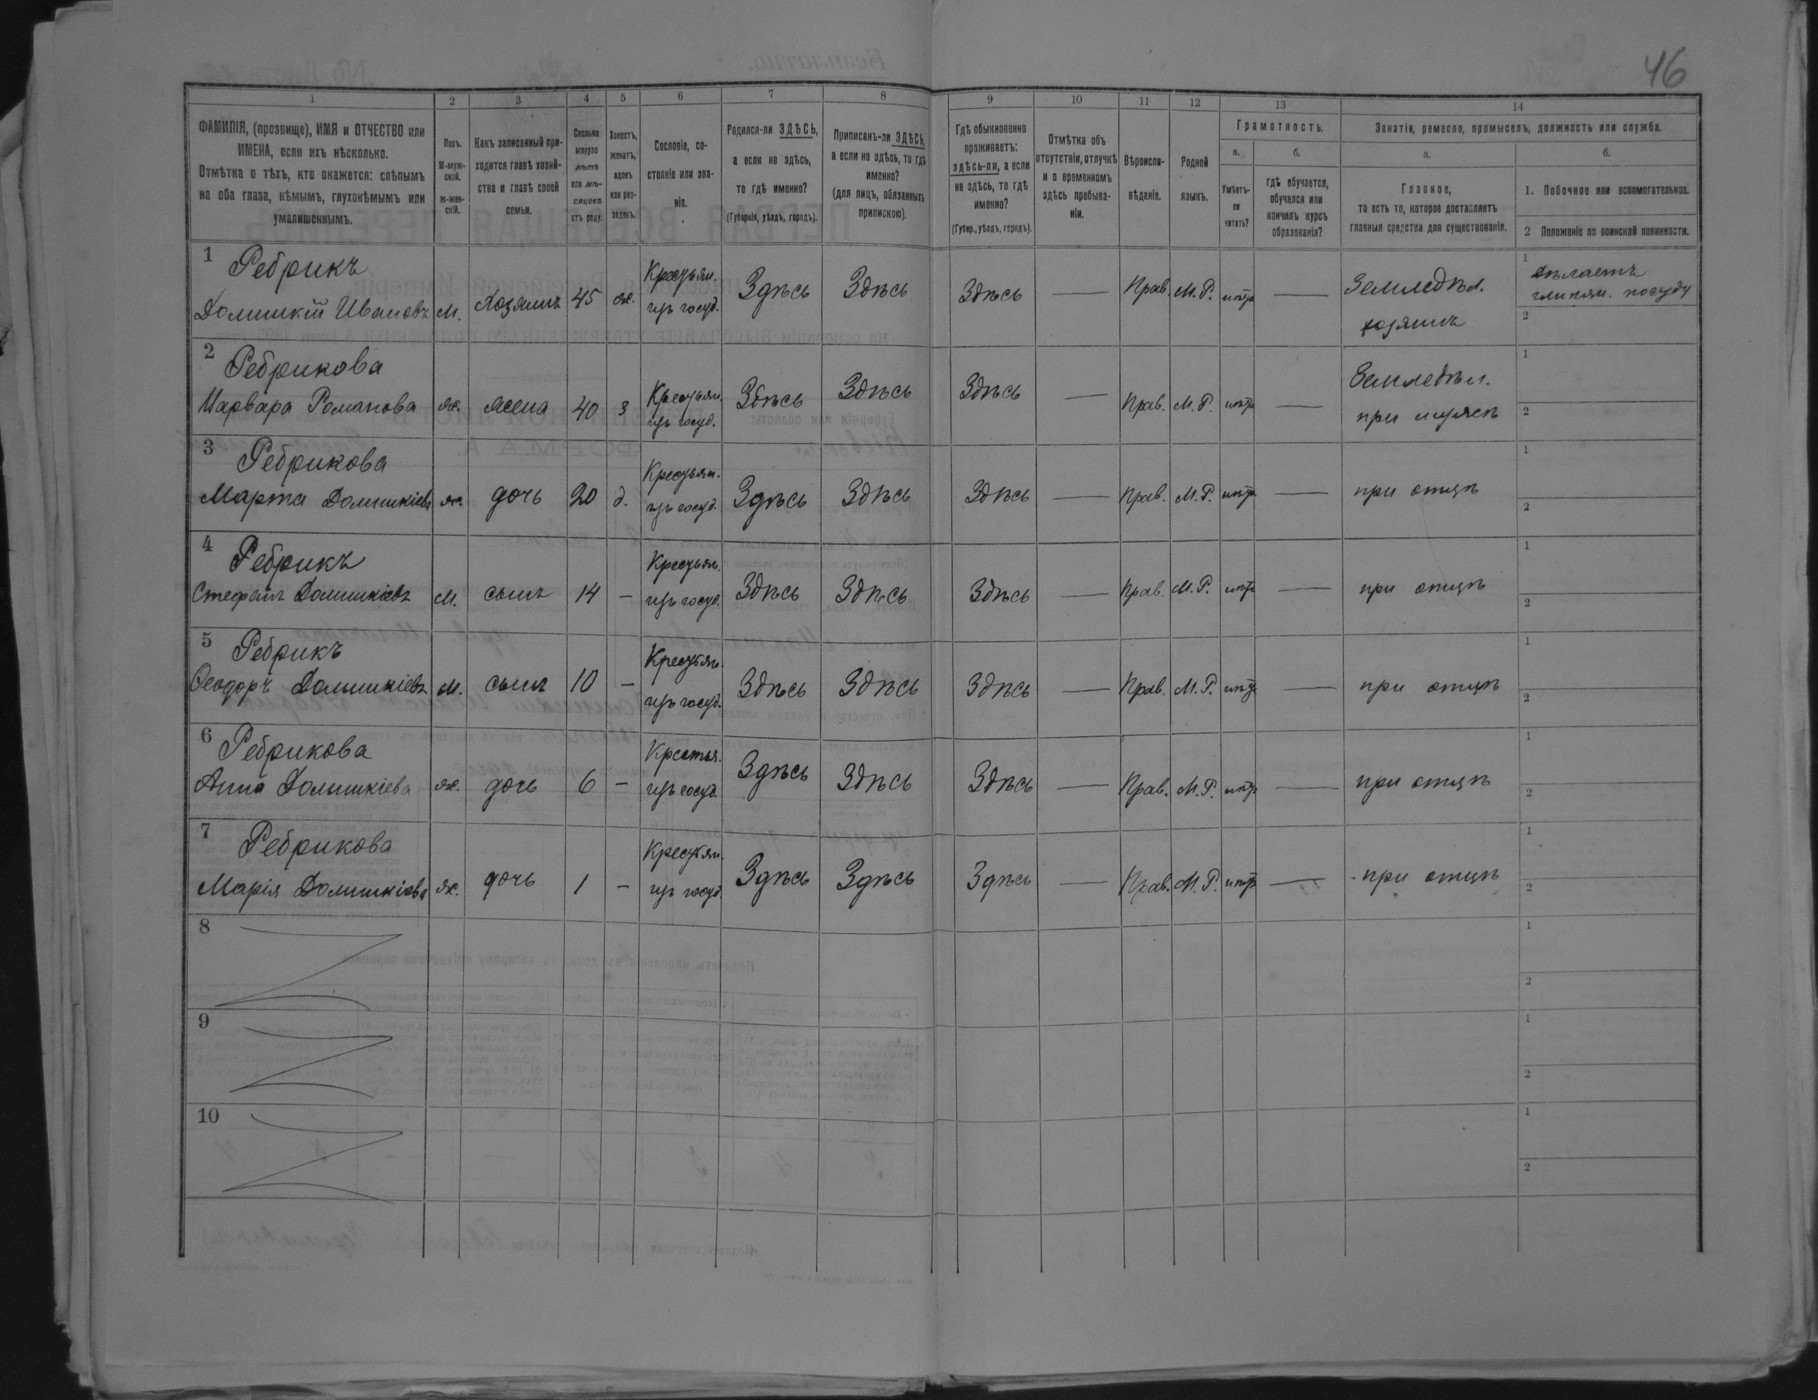 46
1 2 3 4 5 6 7 8 9 10 11 12 13 14
ФАМИЛІЯ, (прозвище), ИМЯ и ОТЧЕСТВО или
ИМЕНА, если ихъ нѣсколько.
Отмѣтка о тѣхъ, кто окажется: слѣпымъ
на оба глаза, нѣмымъ, глухонѣмымъ или
умалишеннымъ.
Полъ.
М-муж-
ской.
ж-жен-
скій.
Какъ записанный при-
ходится главѣ хозяй-
ства и главѣ своей
семьи.
Сколько
минуло
лѣтъ
или мѣ-
сяцевъ
отъ роду.
Холостъ,
женатъ,
вдовъ
или раз-
веденъ.
Сословіе, со-
стояніе или зва-
ніе.
Родился-ли ЗДѢСЬ,
а если не здѣсь,
то гдѣ именно?
(Губернія, уѣздъ, городъ).
Приписанъ-ли ЗДѢСЬ,
а если не здѣсь, то гдѣ
именно?
(для лицъ, обязанныхъ
припискою).
Гдѣ обыкновенно
проживаетъ:
здѣсь-ли, а если
не здѣсь, то гдѣ
именно?
(Губер., уѣздъ, городъ).
Отмѣтка объ
отсутствіи, отлучкѣ
и о временномъ
здѣсь пребыва-
ніи.
Вѣроиспо-
вѣданіе.
Родной
языкъ.
Грамотность.
а.
Умѣетъ-
ли
читать?
б.
гдѣ обучается,
обучался или
кончилъ курсъ
образованія?
Занятіе, ремесло, промыселъ, должность или служба.
а.
Главное,
то есть то, которое доставляетъ
главныя средства для существованія.
б.
1. Побочное или вспомогательное.
2 Положеніе по воинской повинности.
1 Ребрикъ Крестьян. 1 дѣлаетъ
Долмикій Ивановъ М. хозяинъ 45 ж. изъ госуд. Здѣсь Здѣсь Здѣсь — Прав. М.Р. нѣтъ — Земледѣл. глинян. посуду
хозяинъ 2
2 Ребрикова Земледѣл. 1
Варвара Романова ж. жена 40 з Крестьян. изъ госуд. Здѣсь Здѣсь Здѣсь — Прав. М.Р. нѣтъ — при мужѣ 2
3 Ребрикова Крестьян. 1
Марта ж. дочь 20 д. изъ госуд. Здѣсь Здѣсь Здѣсь — Прав. М.Р. нѣтъ — при отцѣ 2
4 Ребрикъ Крестьян. 1
Стефанъ М. сынъ 14 — изъ госуд. Здѣсь Здѣсь Здѣсь — Прав. М.Р. нѣтъ — при отцѣ 2
5 Ребрикъ Крестьян. 1
Ѳеодоръ М. сынъ 10 — изъ госуд. Здѣсь Здѣсь Здѣсь — Прав. М.Р. нѣтъ — при отцѣ 2
6 Ребрикова Крестья. 1
Анна ж. дочь 6 — изъ госуд. Здѣсь Здѣсь Здѣсь — Прав. М.Р. нѣтъ — при отцѣ 2
7 Ребрикова Крестьян. 1
Марія ж. дочь 1 — изъ госуд. Здѣсь Здѣсь Здѣсь — Прав. М.Р. нѣтъ — при отцѣ 2
8 1
2
9 1
2
10 1
2